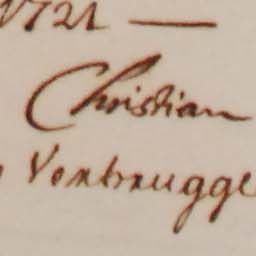 1721 —
Christian
Verbrugge